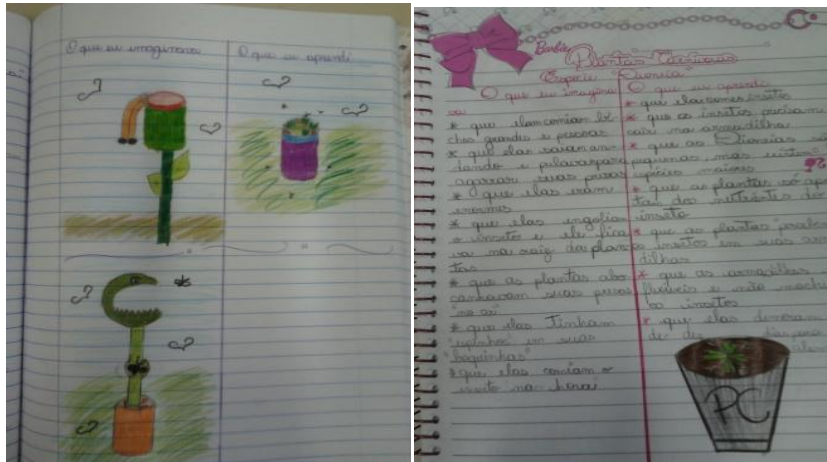 O que eu imaginava
O que eu aprendi
Barbie
Plantas Carnívoras
Espécie "Dionéia"
O que eu imagina
va
* que elas comiam bi
chos grandes e pessoas
* que elas
e pulavam para
agarrar suas presas
* que elas eram
enormes
* que elas engoliam
o inseto e ele fica
va na raiz da plan
tas
* que as plantas
suas presas
"no ar"
* que elas tinham
"espinhos" em suas
"boquinhas"
* que elas comiam o
inseto na hora
O que eu aprendi
* que elas comem insetos
* que os insetos precisam
cair na armadilha
* que as Dionéias são
pequenas, mas existem
espécies maiores
* que as plantas só
dos nutrientes do
inseto
* que as plantas
os insetos em suas arma
dilhas
* que as armadilhas
flexíveis e não
os insetos
* que elas demoram
de dez dias para
PC